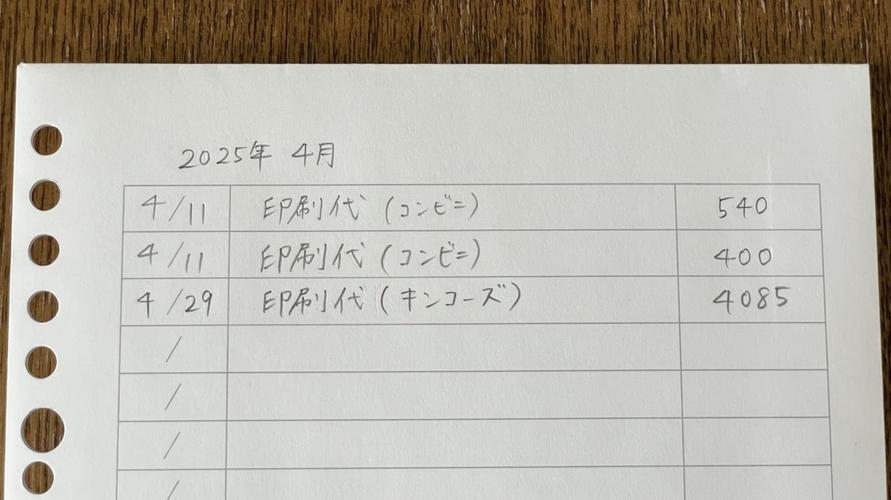 2025年 4月
4/11 印刷代(コンビニ) 540
4/11 印刷代(コンビニ) 400
4/29 印刷代(キンコーズ) 4085
/
/
/
/